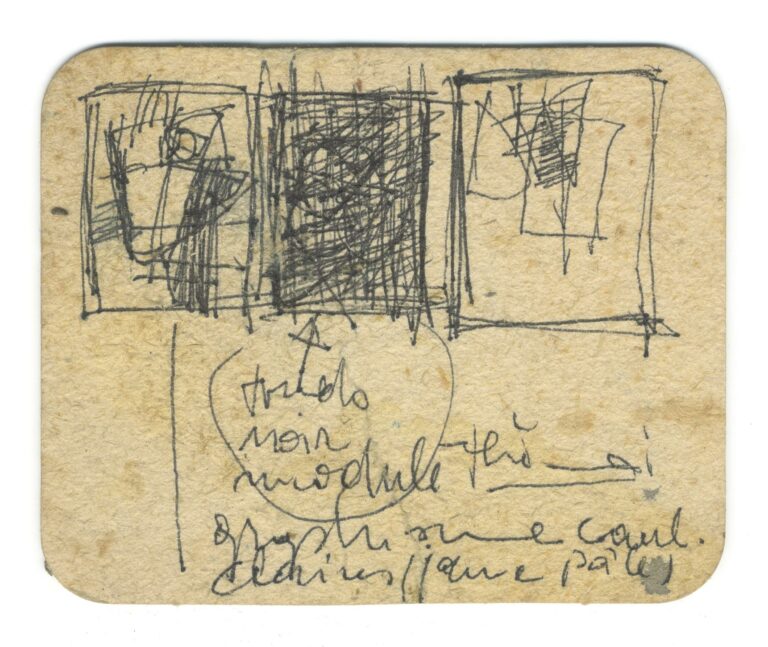 fonds
noir
modulé
graphisme coul.
claires (jaune pâle)